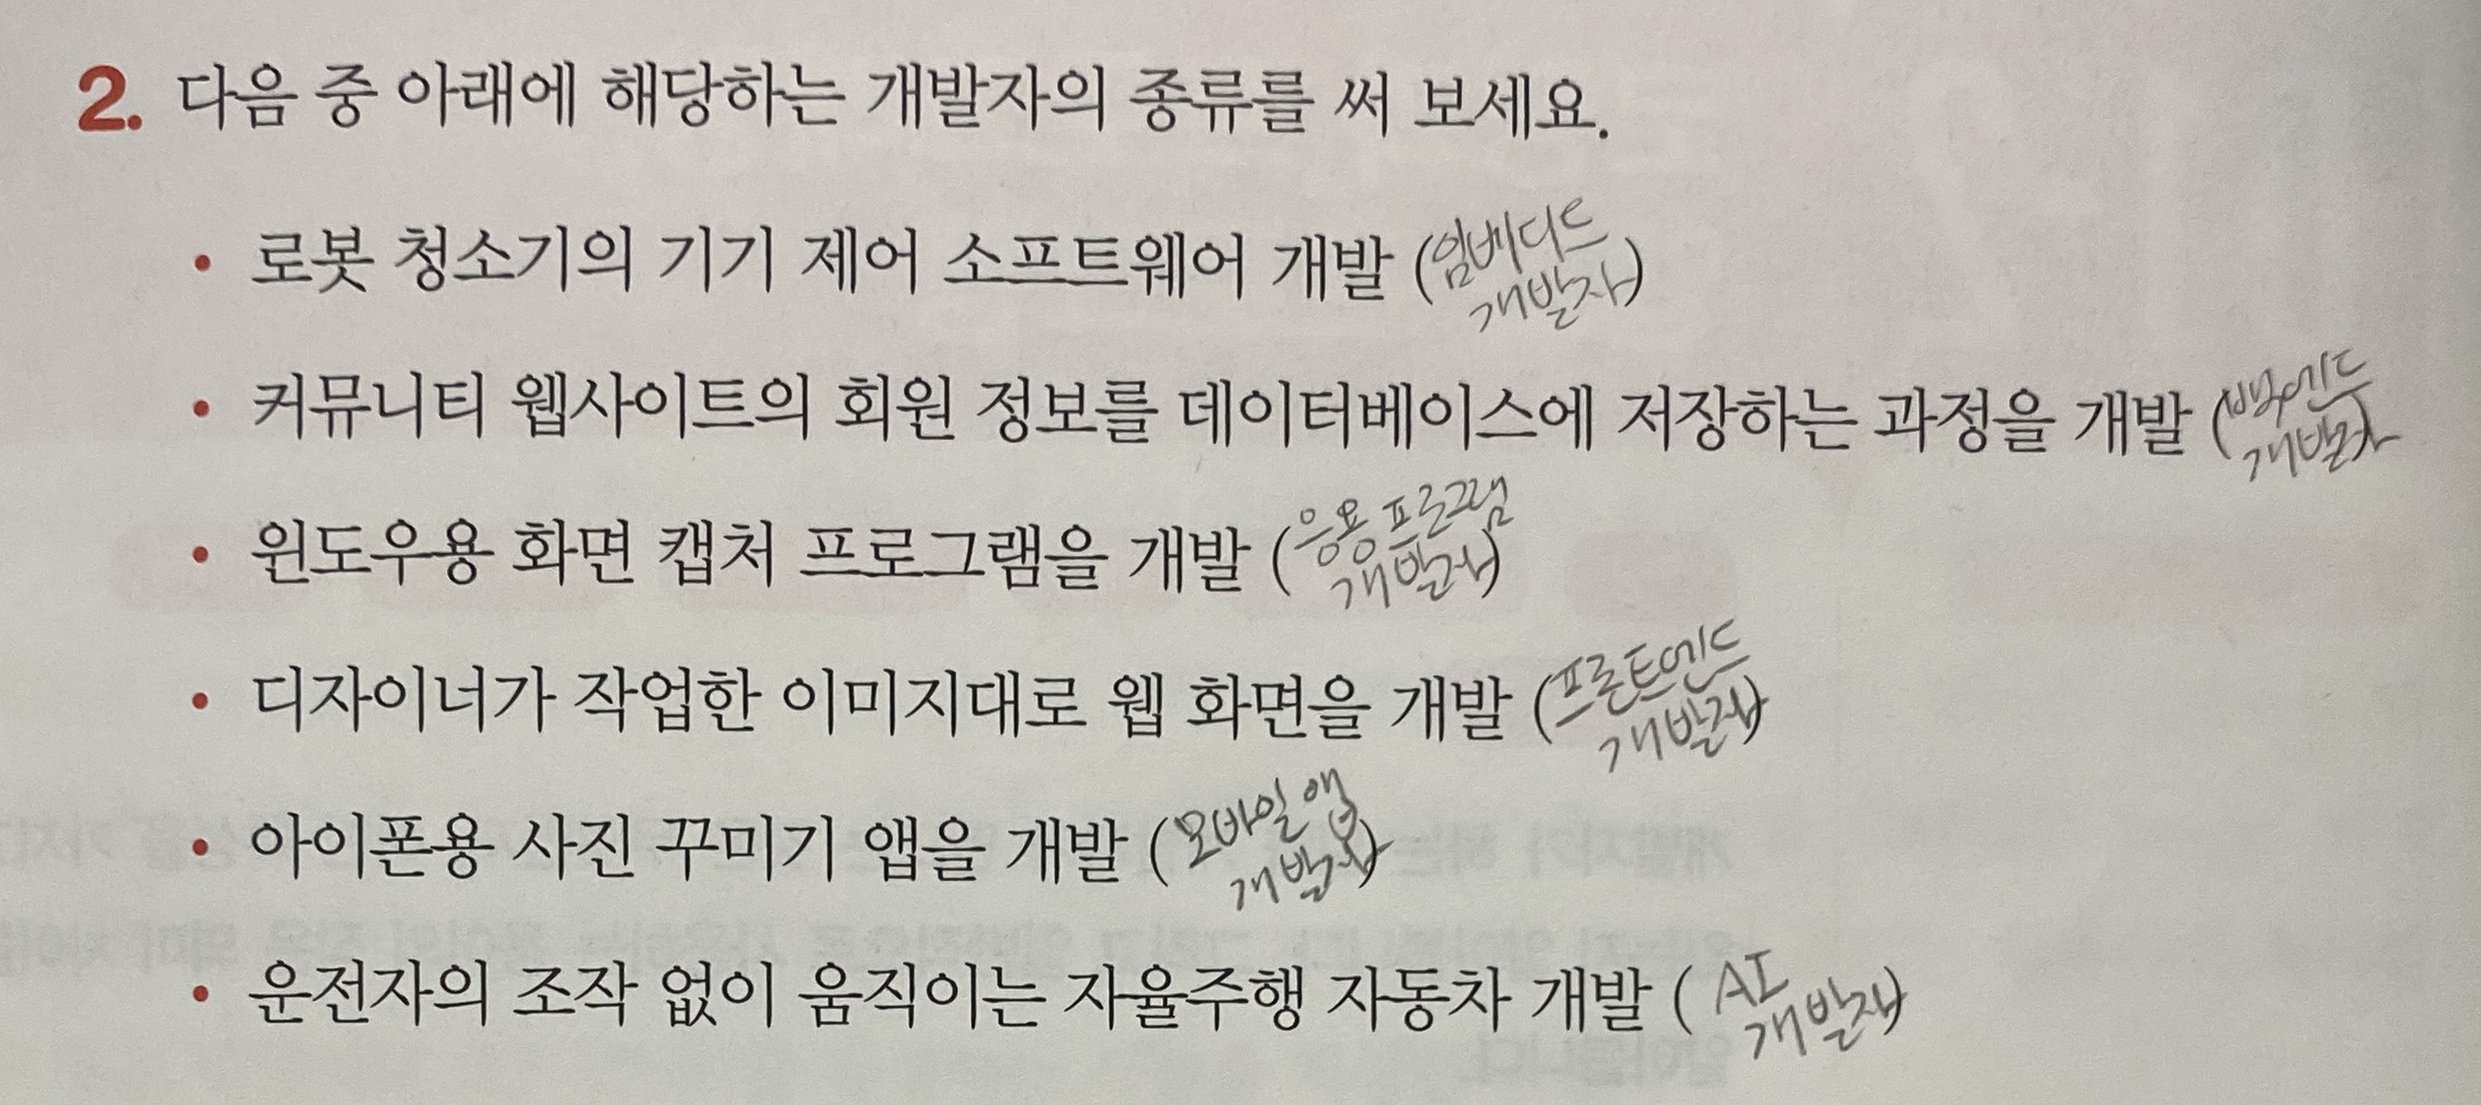 2. 다음 중 아래에 해당하는 개발자의 종류를 써 보세요.
• 로봇 청소기의 기기 제어 소프트웨어 개발 (임베디드
개발자)
• 커뮤니티 웹사이트의 회원 정보를 데이터베이스에 저장하는 과정을 개발 (백엔드
개발자)
• 윈도우용 화면 캡처 프로그램을 개발 (응용 프로그램
개발자)
• 디자이너가 작업한 이미지대로 웹 화면을 개발 (프론트엔드
개발자)
• 아이폰용 사진 꾸미기 앱을 개발 (모바일 앱
개발자)
• 운전자의 조작 없이 움직이는 자율주행 자동차 개발 (AI
개발자)